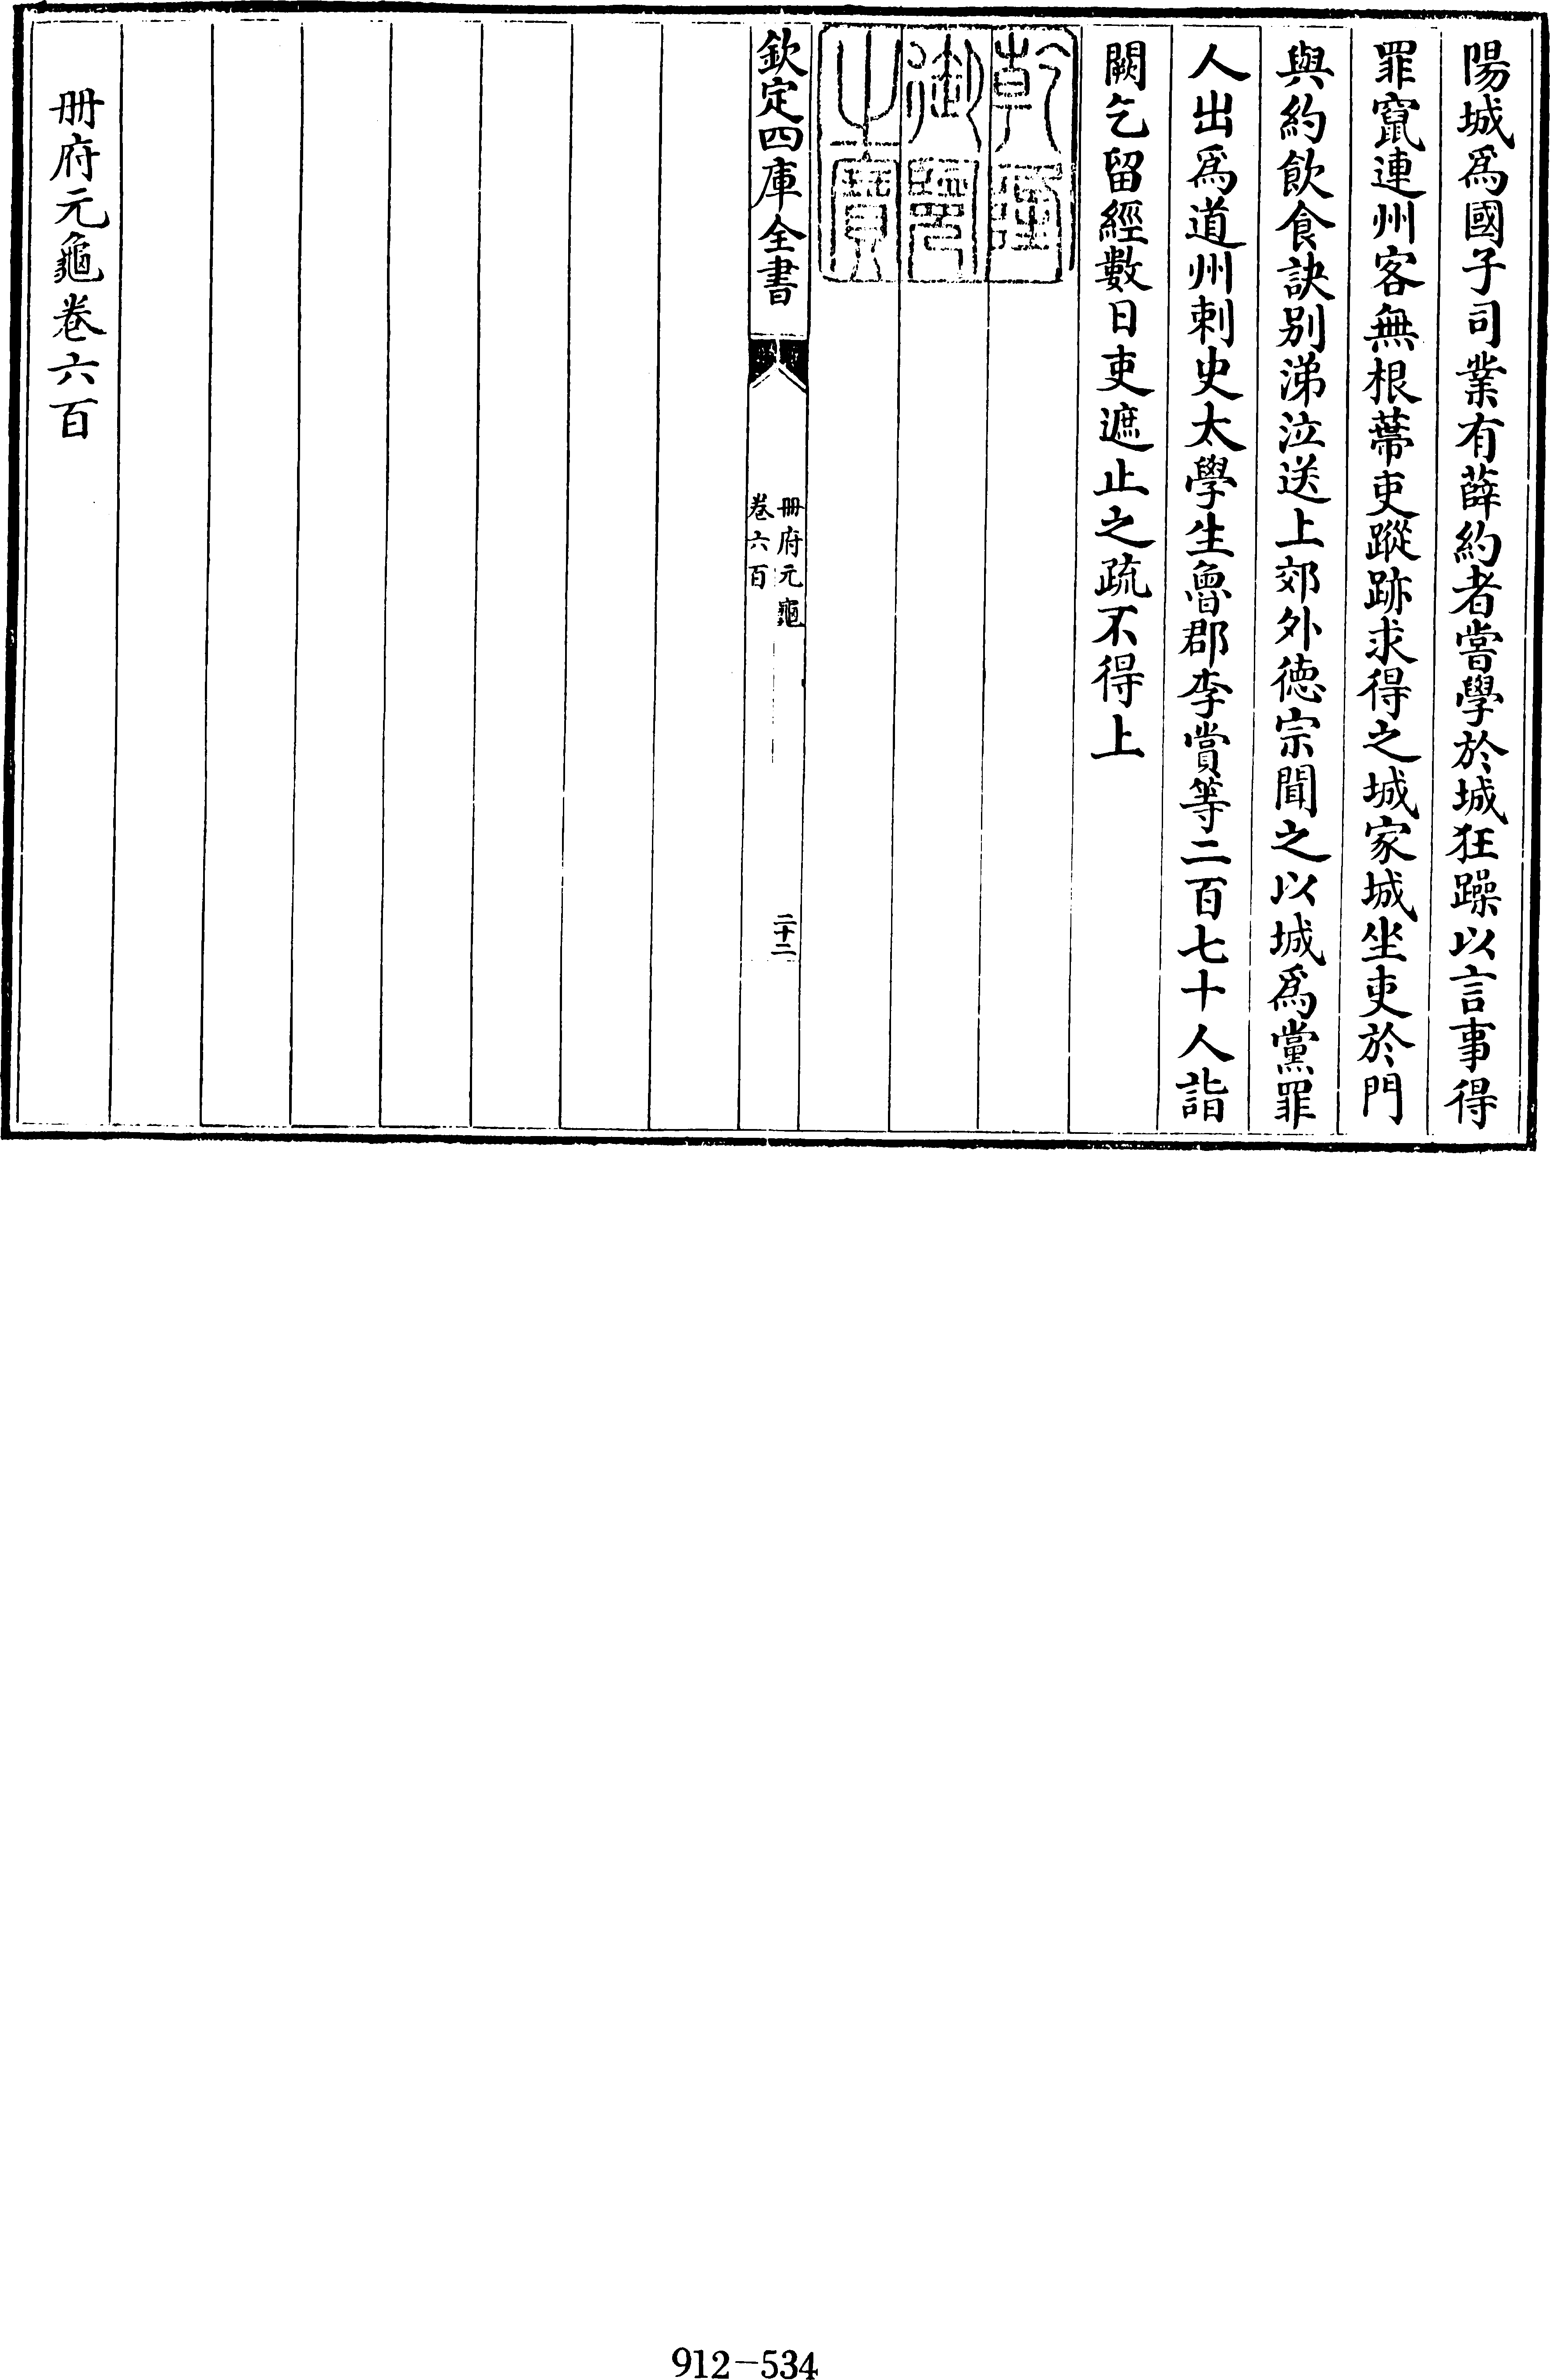 陽城爲國子司業有薛約者嘗學於城狂躁以言事得
罪竄連州客無根蔕吏蹤跡求得之城家城坐吏於門
與約飲食訣别涕泣送上郊外徳宗聞之以城爲黨罪
人出爲道州刺史太學生魯郡李賞等二百七十人詣
闕乞留經數日吏遮止之疏不得上
乾隆
御覽
之寶
欽定四庫全書
冊府元龜
卷六百
二十二
冊府元龜卷六百
912-534